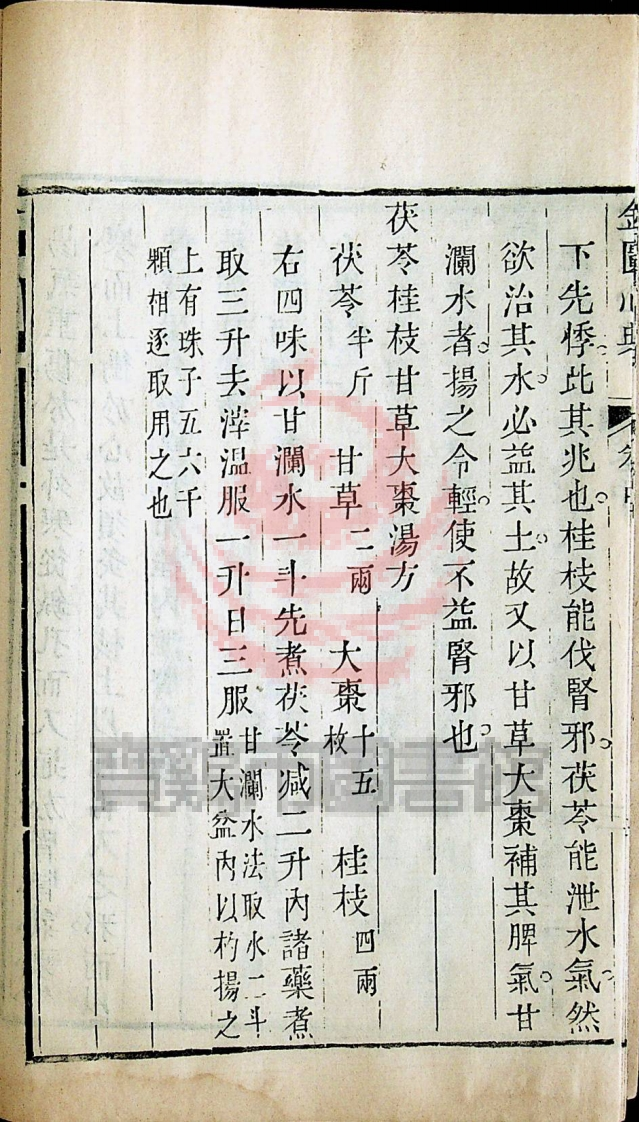 金匱心典
下先悸此其兆也桂枝能伐腎邪茯苓能泄水氣然
欲治其水必益其土故又以甘草大棗補其脾氣甘
瀾水者揚之令輕使不益腎邪也
茯苓桂枝甘草大棗湯方
茯苓半斤 甘草二兩 大棗十五枚 桂枝四兩
右四味以甘瀾水一斗先煮茯苓減二升內諸藥煮
取三升去滓溫服一升日三服甘瀾水法取水二斗置大盆內以杓揚之
上有珠子五六千
顆相逐取用之也
寶雞市圖書館